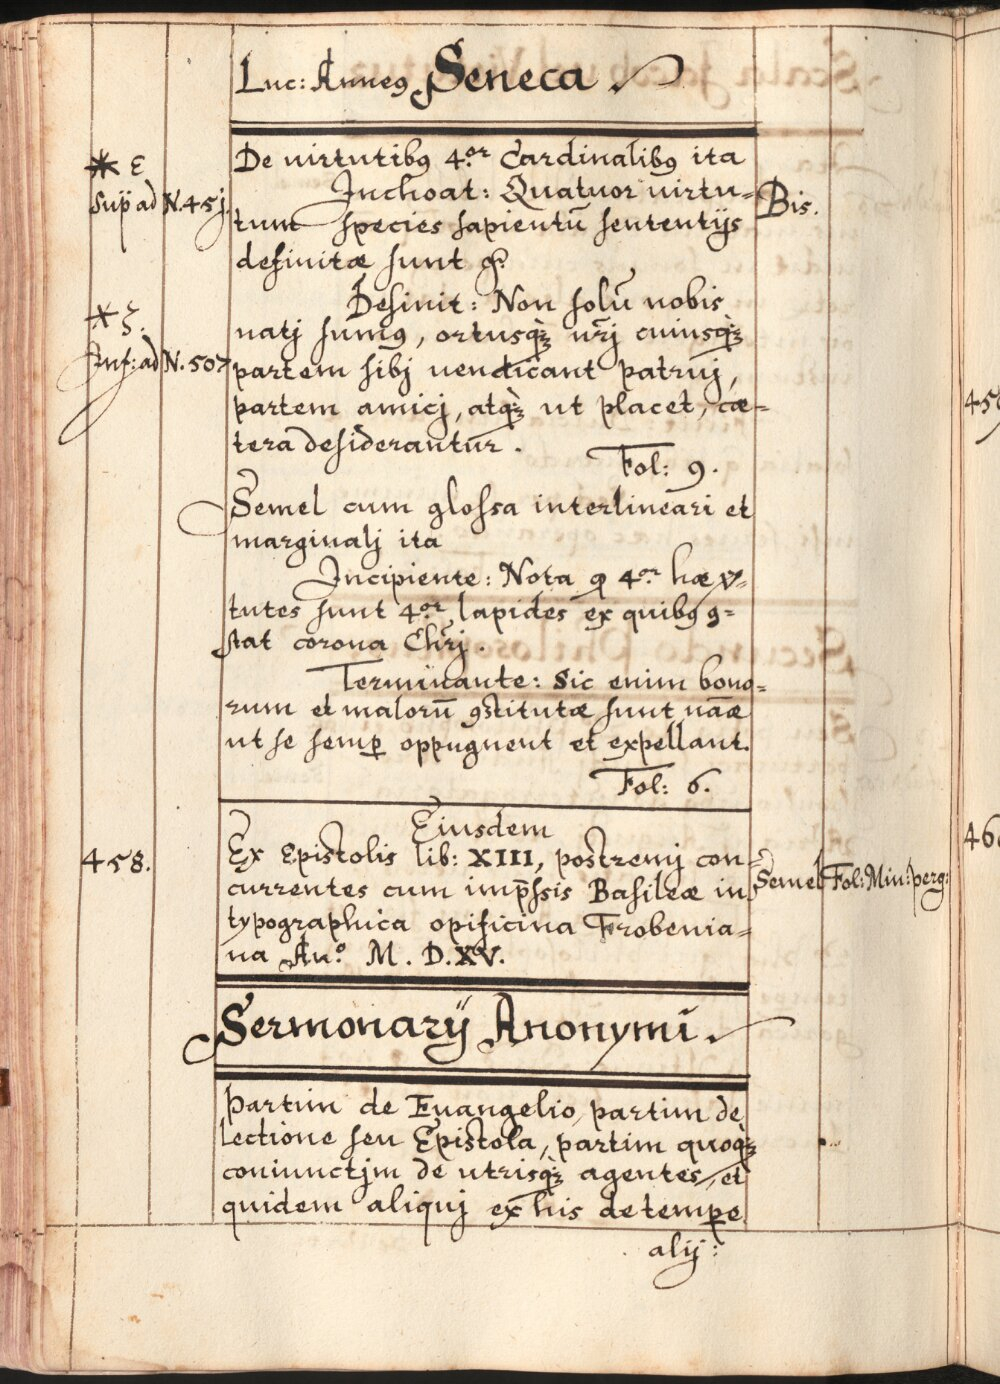 Luc: Anneꝰ Seneca
De uirtutibꝰ 4.or Cardinalibꝰ ita
Inchoat: Quatuor uirtu=
tum species sapientū sententijs
definitæ sunt &c.
Bis.
* ε
Sup̄ ad N. 45j.
Definit: Non solū nobis
natj sumꝰ, ortusq̀ꝫ nr̄j cuiusq̀ꝫ
partem sibj uendicant patruj,
partem amicj, atq̀ꝫ ut placet, cæ=
tera desiderantur.
Fol: 9.
* ξ.
Inf: ad N. 507
Semel cum glossa interlineari et
marginalj ita
Incipiente: Nota ꝙ 4.or hæ v̄=
tutes sunt 4.or lapides ex quibꝰ ꝯ=
stat corona Chr̄j.
Terminante: Sic enim bono=
rum et malorū ꝯstitutæ sunt nāæ
ut se semꝑ oppugnent et expellant.
Fol: 6.
458.
Eiusdem
Ex Epistolis lib: XIII, postremj con=
currentes cum imp̄ssis Basileæ in
typographica opificina Frobenia=
na An.o M. D. XV.
Semel Fol: Min: perg:
Sermonarij Anonymi.
Partim de Euangelio, partim de
Lectione seu Epistola, partim quoq̀ꝫ
coniunctjm de utrisq̀ꝫ agentes, et
quidem aliquj ex his de temꝑe
alij: